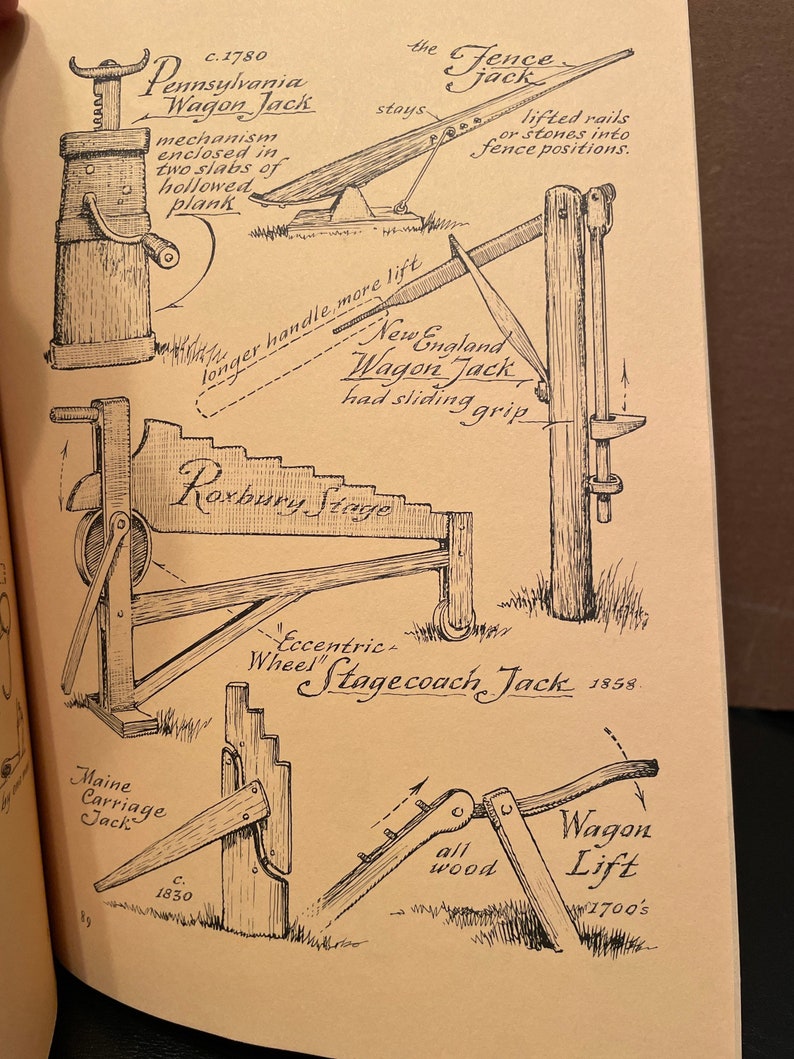 c.1780
Pennsylvania
Wagon Jack
mechanism
enclosed in
two slabs of
hollowed
plank
the Fence
jack
stays
lifted rails
or stones into
fence positions.
longer handle, more lift
New England
Wagon Jack
had sliding
grip
Roxbury Stage
"Eccentric
Wheel"
Stagecoach Jack 1858.
Maine
Carriage
Jack
c.
1830
all
wood
Wagon
Lift
1700's
89
by